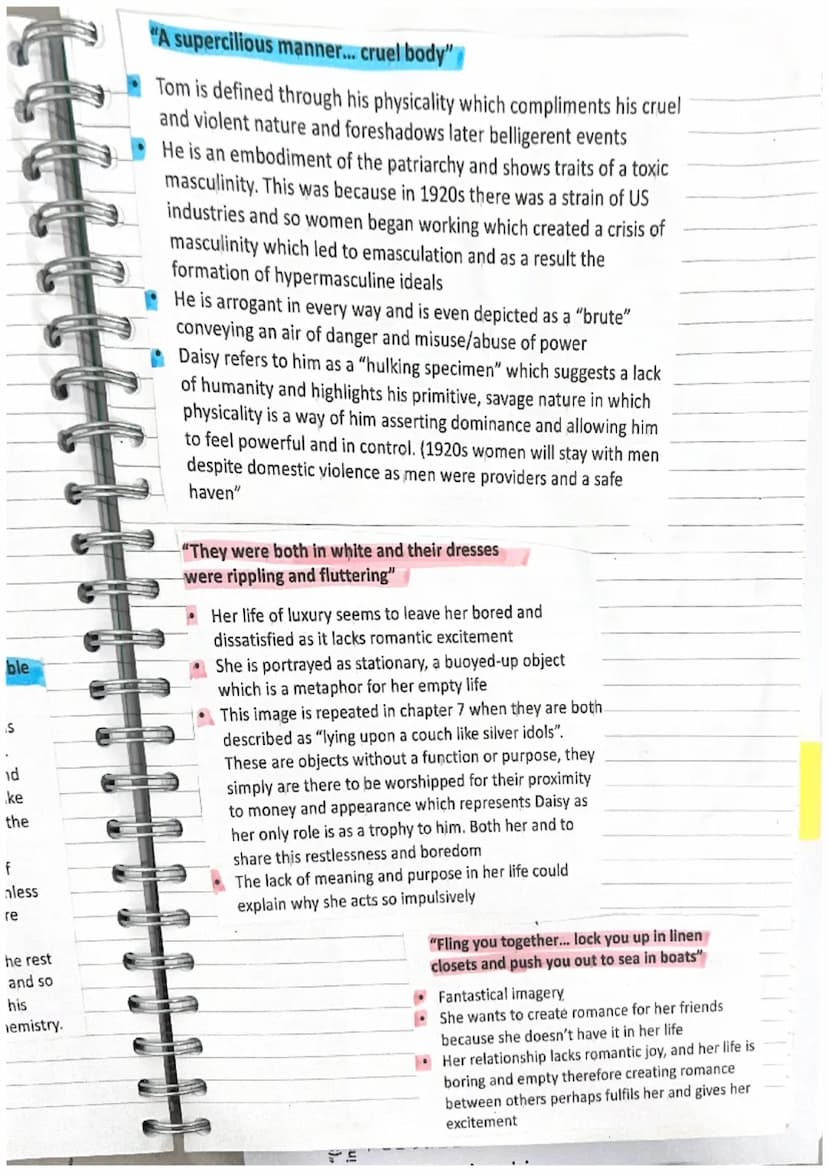 "A supercilious manner... cruel body"
• Tom is defined through his physicality which compliments his cruel
and violent nature and foreshadows later belligerent events
• He is an embodiment of the patriarchy and shows traits of a toxic
masculinity. This was because in 1920s there was a strain of US
industries and so women began working which created a crisis of
masculinity which led to emasculation and as a result the
formation of hypermasculine ideals
• He is arrogant in every way and is even depicted as a "brute"
conveying an air of danger and misuse/abuse of power
• Daisy refers to him as a "hulking specimen" which suggests a lack
of humanity and highlights his primitive, savage nature in which
physicality is a way of him asserting dominance and allowing him
to feel powerful and in control. (1920s women will stay with men
despite domestic violence as men were providers and a safe
haven"
"They were both in white and their dresses
were rippling and fluttering"
• Her life of luxury seems to leave her bored and
dissatisfied as it lacks romantic excitement
• She is portrayed as stationary, a buoyed-up object
which is a metaphor for her empty life
• This image is repeated in chapter 7 when they are both
described as "lying upon a couch like silver idols".
These are objects without a function or purpose, they
simply are there to be worshipped for their proximity
to money and appearance which represents Daisy as
her only role is as a trophy to him. Both her and to
share this restlessness and boredom
• The lack of meaning and purpose in her life could
explain why she acts so impulsively
"Fling you together... lock you up in linen
closets and push you out to sea in boats"
• Fantastical imagery
• She wants to create romance for her friends
because she doesn't have it in her life
• Her relationship lacks romantic joy, and her life is
boring and empty therefore creating romance
between others perhaps fulfils her and gives her
excitement
ble
.s
.
nd
ke
the
f
nless
re
he rest
and so
his
emistry.